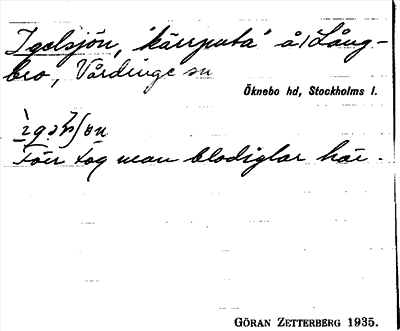 Igelsjön, 'kärrputa' å/Lång-
bro, Vårdinge sn
Öknebo hd, Stockholms l.
Förr tog man blodiglar här.
GÖRAN ZETTERBERG 1935.